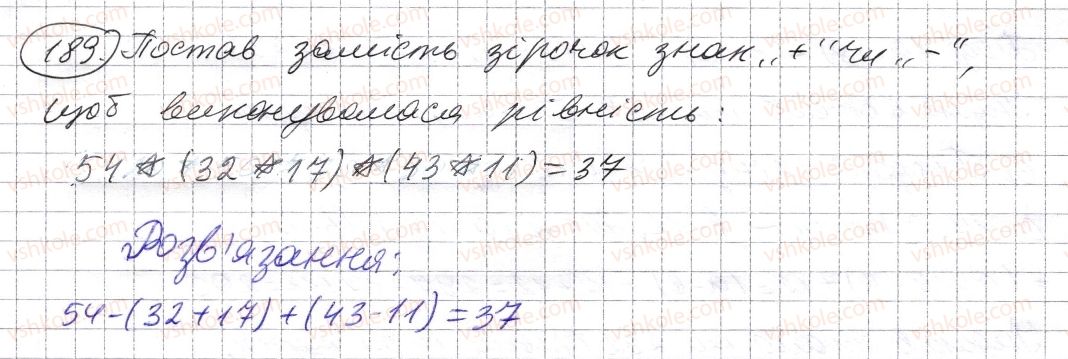 189. Постав замість зірочок знак „+“ чи „-“,
щоб виконувалася рівність:
54 * (32 * 17) * (43 * 11) = 37
Розв'язання:
54-(32+17)+(43-11)=37